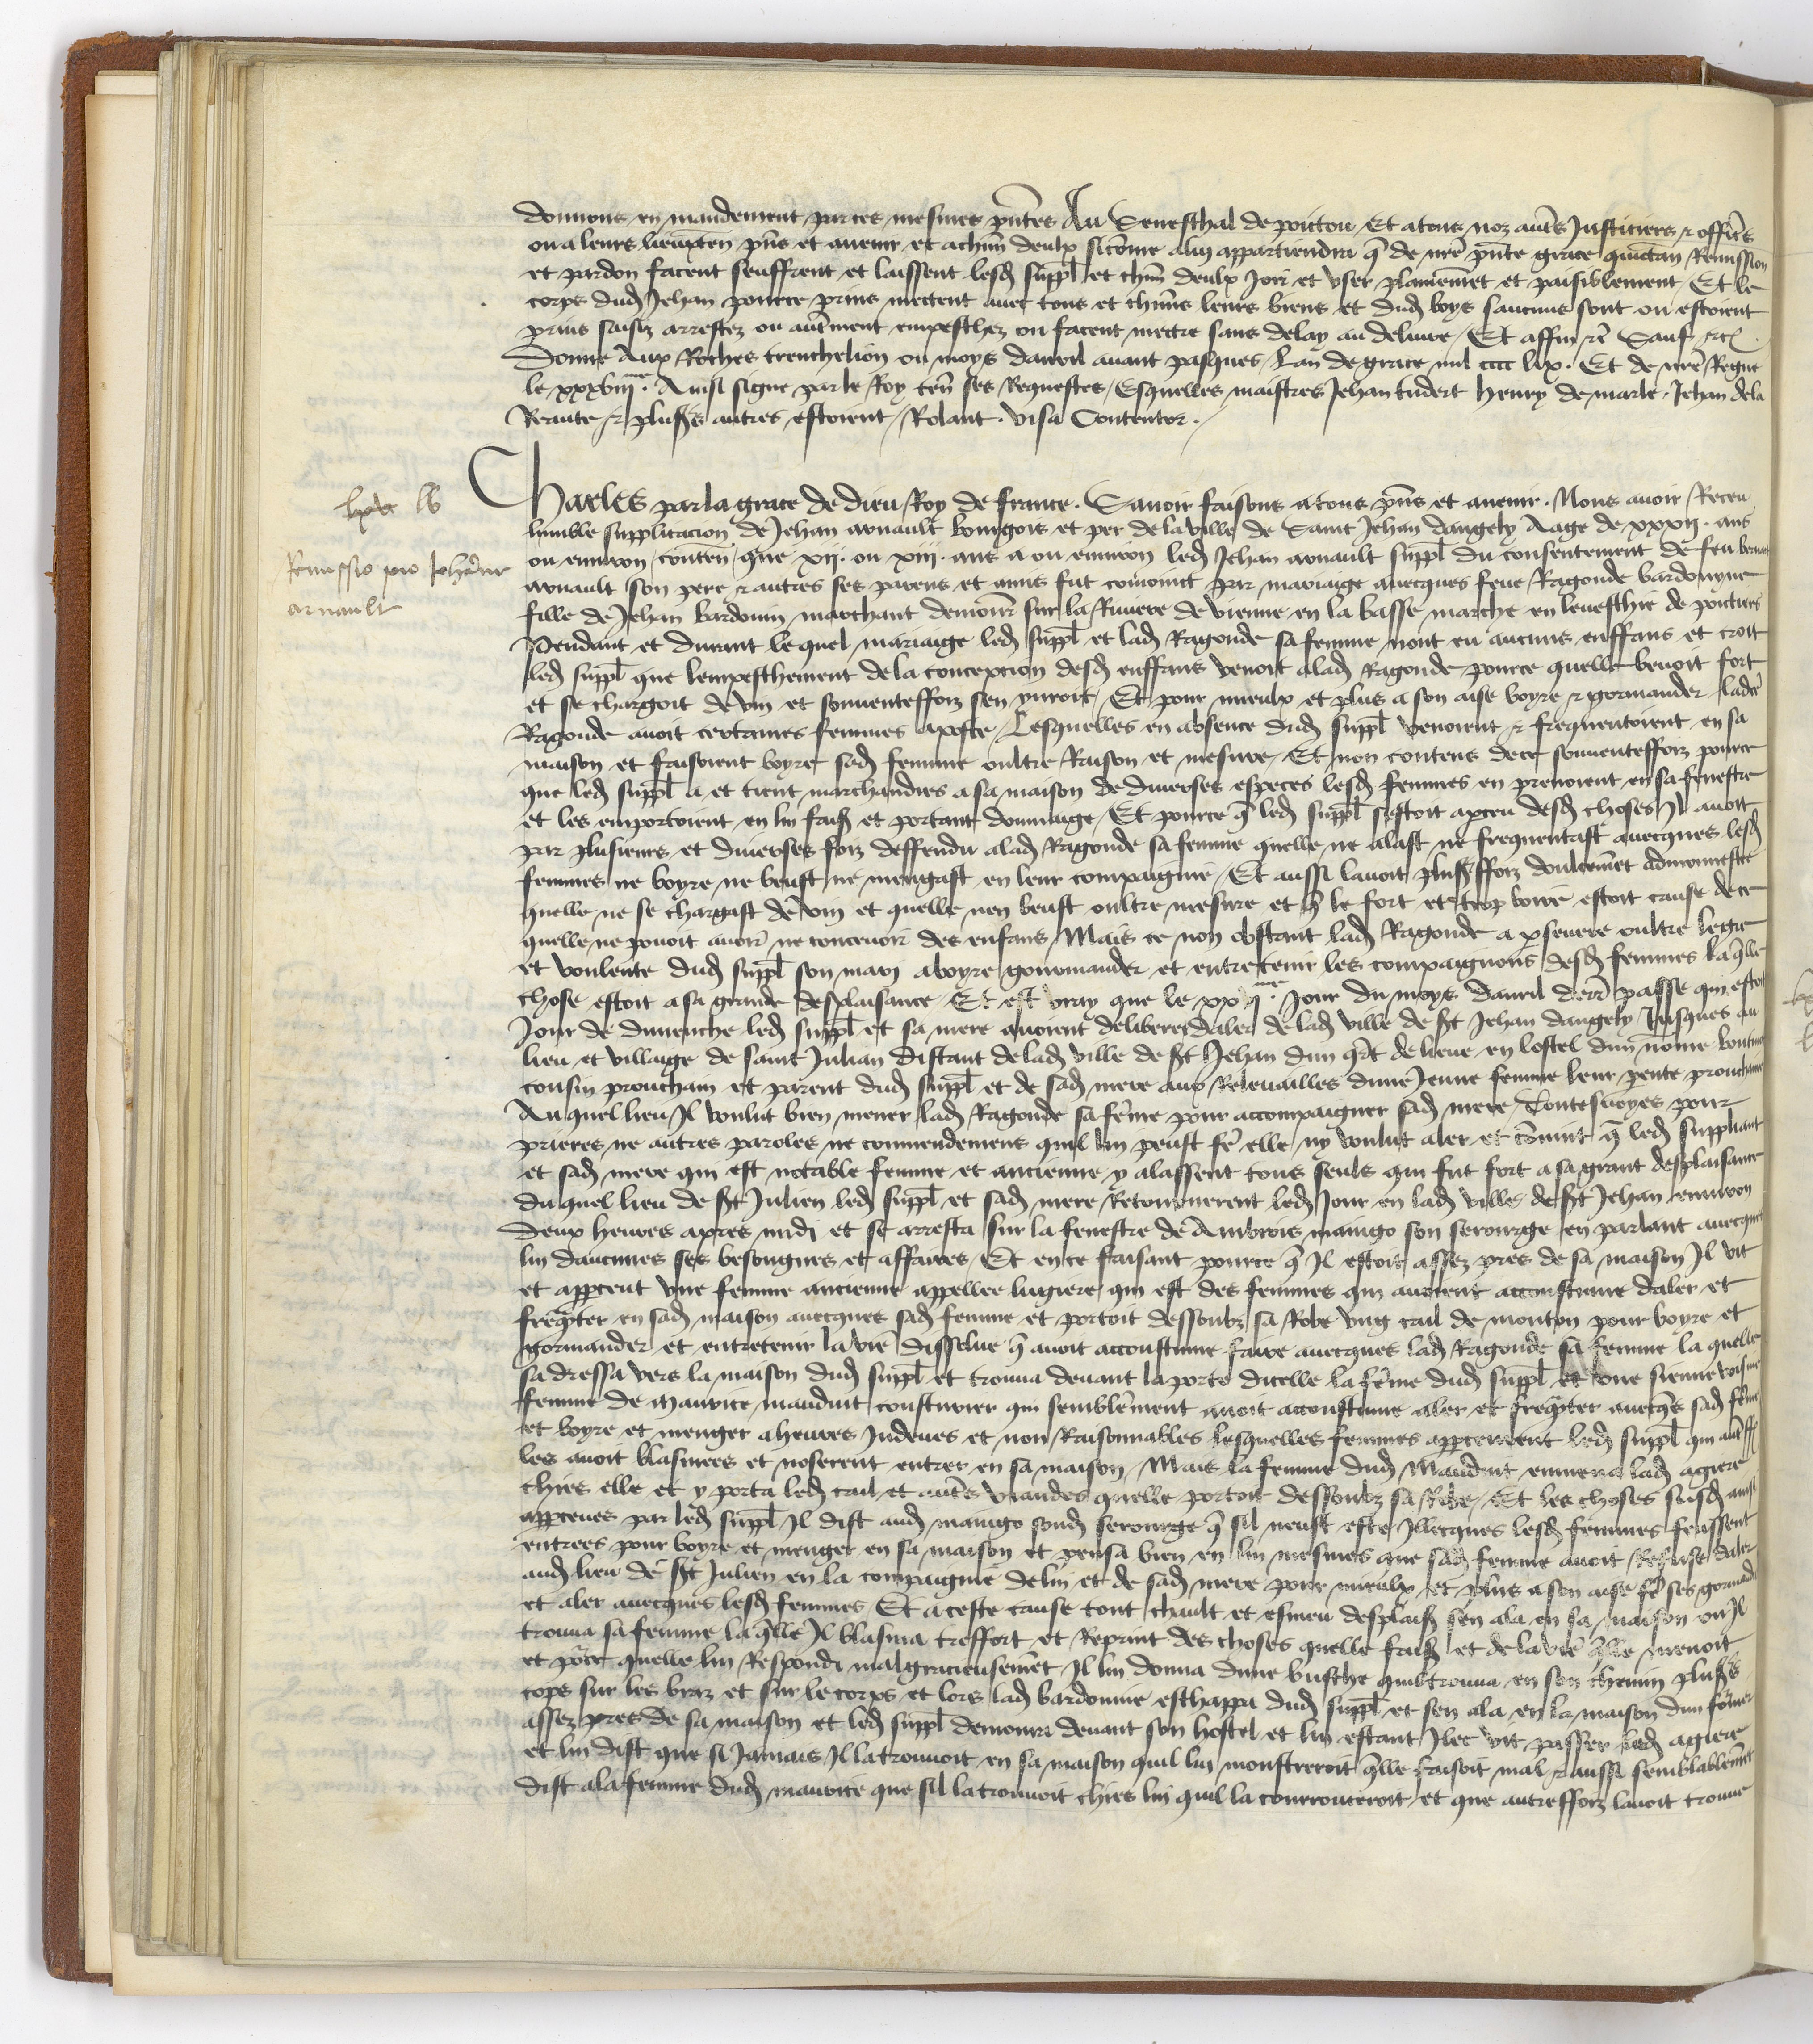 donnons en mandement par ces mesmes pntes Au Seneschal de poictou Et a tous noz autes Justiciers & officers
ou a leurs lieuxten pns et avenir et a chun deulx sicome a luy appartiendra q de nre pnte grace quictan Remission
et pardon facent seuffrent et laissent lesd suppl et chun deulx Joir et user plainemet et paisiblement Et le
corps dud Jehan pource prins mectent avec tous et chuns leurs biens et dud boys saucuns sont ou estoient
prins saisiz arrestez ou autement empeschez ou facent mectre sans delay au delivre Et affin &c Sauf &c
Donne Aux Roches trenchelion ou moys davril avant pasques Lan de grace mil cccc lix. Et de nre Regne
le xxxviii me. Ainsi signe par le Roy ten ses Requestes Esquelles maistres Jehan tudert Henry de marle Jehan de la
Reaute & plus's autres estoient Rolant. visa Contentor.
Charles par la grace de dieu Roy de france. Savoir faisons a tous pns et avenir. Nous avoir Receu
humble supplicacion de Jehan arnault bourgois et per de la ville de Saint Jehan dangely Aage de xxxii. ans
ou environ conten que xii. ou xiii. ans a ou environ led Jehan arnault suppl du consentement de feu
Remissio pro Joh'ne
arnault
arnault son pere & autres ses parens et amis fut conioinct par mariaige avecques feue Ragonde bardouyne
fille de Jehan bardouin marchant demour sur la Riviere de vienne en la basse marche en leveschie de poictiers
Pendant et durant lequel mariaige led suppl et lad Ragonde sa femme nont eu aucuns enffans et croit
led suppl que lempeschement de la concepcion desd enffans venoit a lad Ragonde pource quelle bevoit fort
et se chargoit de vin et souventeffoiz sen yvroit Et pour mieulx et plus a son aise boyre & gormander lade
Ragonde avoit certaines femmes aposte Lesquelles en absence dud suppl venoient & frequentoient en sa
maison et faisoient boyre sad femme oultre Raison et mesure Et non contens de ce souventeffoiz pource
que led suppl a et tient marchandies a sa maison de diverses especes lesd femmes en prenoient en sa fenestre
et les emportoient en lui fais et portant dommaige Et pource q led suppl sestoit apceu desd choses Il avoit
par plusieurs et diverses foiz deffendu a lad Ragonde sa femme quelle ne alast ne frequentast avecques lesd
femmes ne boyre ne beust ne mengast en leur compaignie Et aussi lavoit plus'ffoiz doulcemet admonneste
quelle ne se chargast de vin et quelle nen beust oultre mesure et q le fort et trop boire estoit cause de ce
quelle ne povoit avoir ne concevoir des enfans Mais ce non obstant lad Ragonde a psevere oultre le gre
et voulente dud suppl son mary a boyre gourmander et entretenir les compaignons desd femmes laqlle
chose estoit a sa grande desplaisance Et est vray que le xx me Jour du moys davril derr passe qui estoit
Jour de dimenche led suppl et sa mere avoient delibere daler de lad ville de st Jehan dangely Jusques au
lieu et villaige de saint Julian distant de lad ville de st Jehan dun qrt de lieue en lostel dun nome
cousin prouchain et parent dud suppl et de sad mere aux Relevailles dune Jeune femme leur pente prouchaine
Auquel lieu Il voulut bien mener lad Ragonde sa feme pour accompaigner sad mere Toutesvoyes pour
prieres ne autres paroles ne commendemens quil lui peust fe elle ny voulut aler et convint q led suppliant
et sad mere qui est notable femme et ancienne y alassent tous seuls qui fut fort a sa grant desplaisance
du quel lieu de st Julien led suppl et sad mere Retournerent led Jour en lad ville de st Jehan environ
deux heures apres midi et se arresta sur la fenestre de Ambrois mainigo son serourge en parlant avecques
lui daucunes ses besongnes et affaires Et en ce faisant pource q Il estoit assez pres de sa maison Il vit
et appceut une femme ancienne appellee lugiere qui est des femmes qui avoient acoustume daler et
freqnter en sad maison avecques sad femme et portoit dessoubz sa Robe ung cail de mouton pour boyre et
gormander et entretenir la vie dissolue q avoit acoustume faire avecques lad Ragonde sa femme la quelle
sadressa vers la maison dud suppl et trouva devant la porte dicelle la feme dud suppl et une sienne voisine
femme de Maurice mauduit cousturier qui semblement avoit acoustume aler et freqnter avecqs sad feme
et boyre et menger a heures Indeues et non Raisonnables lesquelles femmes appceurent led suppl qui
les avoit blasmees et noserent entrer en sa maison Mais la femme dud Mauduit enmena lad agiere
chies elle et y porta led cail et autes viandes quelle portoit dessoubz sa Robe Et les choses susd ainsi
appceues par led suppl Il dist aud mainigo soud serourge q sil neust este Illecques lesd femmes feussent
entrees pour boyre et menger en sa maison et pensa bien en lui mesmes que sad femme avoit Refuse daler
aud lieu de st Julien en la compaignie de lui et de sad mere pour mieulx et plus a son aise fe ses
et aler avecques lesd femmes Et a ceste cause tout chault et esmeu desplais sen ala en sa maison ou Il
trouva sa femme laqlle Il blasma tresfort et Reprint des choses quelle fais et de la vie qlle menoit
et pource quelle lui Respondi malgracieusemet Il lui donna dune busche quil trouva en son chemin plus's
cops sur les braz et sur le corps et lors lad bardouine eschappa dud suppl et sen ala en la maison dun
assez pres de sa maison et led suppl demoura devant son hostel et lui estant Ilec vit passer lad agiere
et lui dist que si Jamais Il la trouvoit en sa maison quil lui monstreroit qlle faisoit mal & aussi semblablemet
dist a la femme dud maurice que sil la trouvoit chies lui quil la courrouceroit et que autreffoiz lavoit trouve